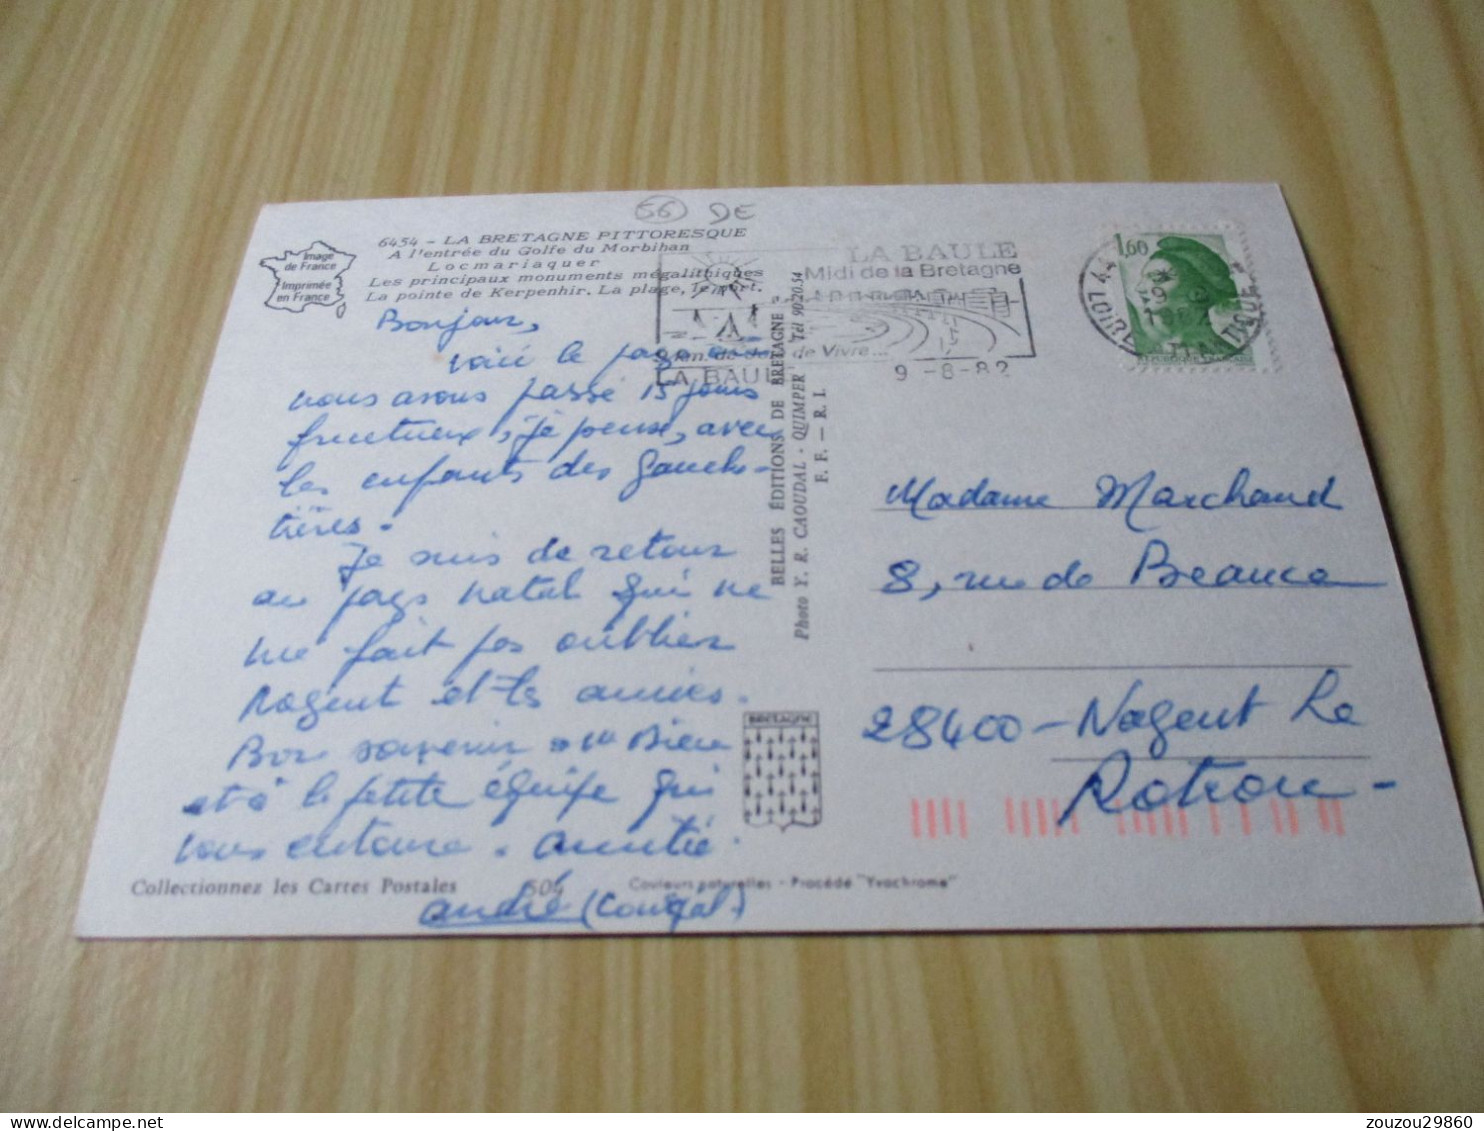 56 DE
6454 - LA BRETAGNE PITTORESQUE
A l'entrée du Golfe du Morbihan
Locmariaquer
Les principaux monuments mégalithiques
La pointe de Kerpenhir. La plage, le port.
Image
de France
Imprimée
en France
LA BAULE
Midi de la Bretagne
de Vivre...
LA BAULE
9-8-82
1,60
44
LOIRE
Bonjour,
voici le pays où
nous avons passé 15 jours
fructueux, je pense, avec
les enfants des
Je suis de retour
au pays natal qui ne
me fait pas oublier
Nogent et les amies.
Bon souvenir
et à la petite équipe qui
vous entoure. Amitié.
André
BELLES ÉDITIONS DE BRETAGNE
Photo Y. R. CAOUDAL - QUIMPER Tél 90.20.54
F. F. — R. I.
BRETAGNE
Madame Marchand
8, rue de Beauce
28400 - Nogent Le
Rotrou -
Collectionnez les Cartes Postales
Couleurs naturelles - Procédé "Yvachrome"
zouzou29860